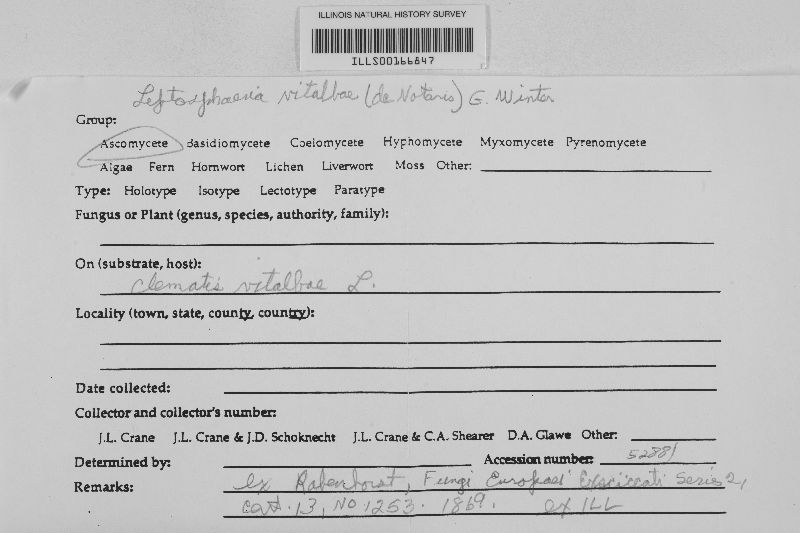 ILLINOIS NATURAL HISTORY SURVEY
ILLS00166847
Leptosphaeria vitalbae (de Notaris) G. Winter
Group:
Ascomycete Basidiomycete Coelomycete Hyphomycete Myxomycete Pyrenomycete
Algae Fern Hornwort Lichen Liverwort Moss Other:
Type: Holotype Isotype Lectotype Paratype
Fungus or Plant (genus, species, authority, family):
On (substrate, host):
Clematis vitalbae L.
Locality (town, state, county, country):
Date collected:
Collector and collector's number:
J.L. Crane J.L. Crane & J.D. Schoknecht J.L. Crane & C.A. Shearer D.A. Glawe Other:
Determined by: Accession number: 52881
Remarks: ex Rabenhorst, Fungi Europaei Exsiccati Series 2,
cat. 13, No 1253. 1869. ex ILL